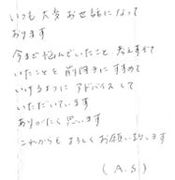 いつも大変お世話になって
おります
今まで悩んでいたこと 考えすぎて
いたことを前向きにすすめて
いけるようにアドバイスして
いただいています
ありがたく思います
これからもよろしくお願い致します
(A.S)